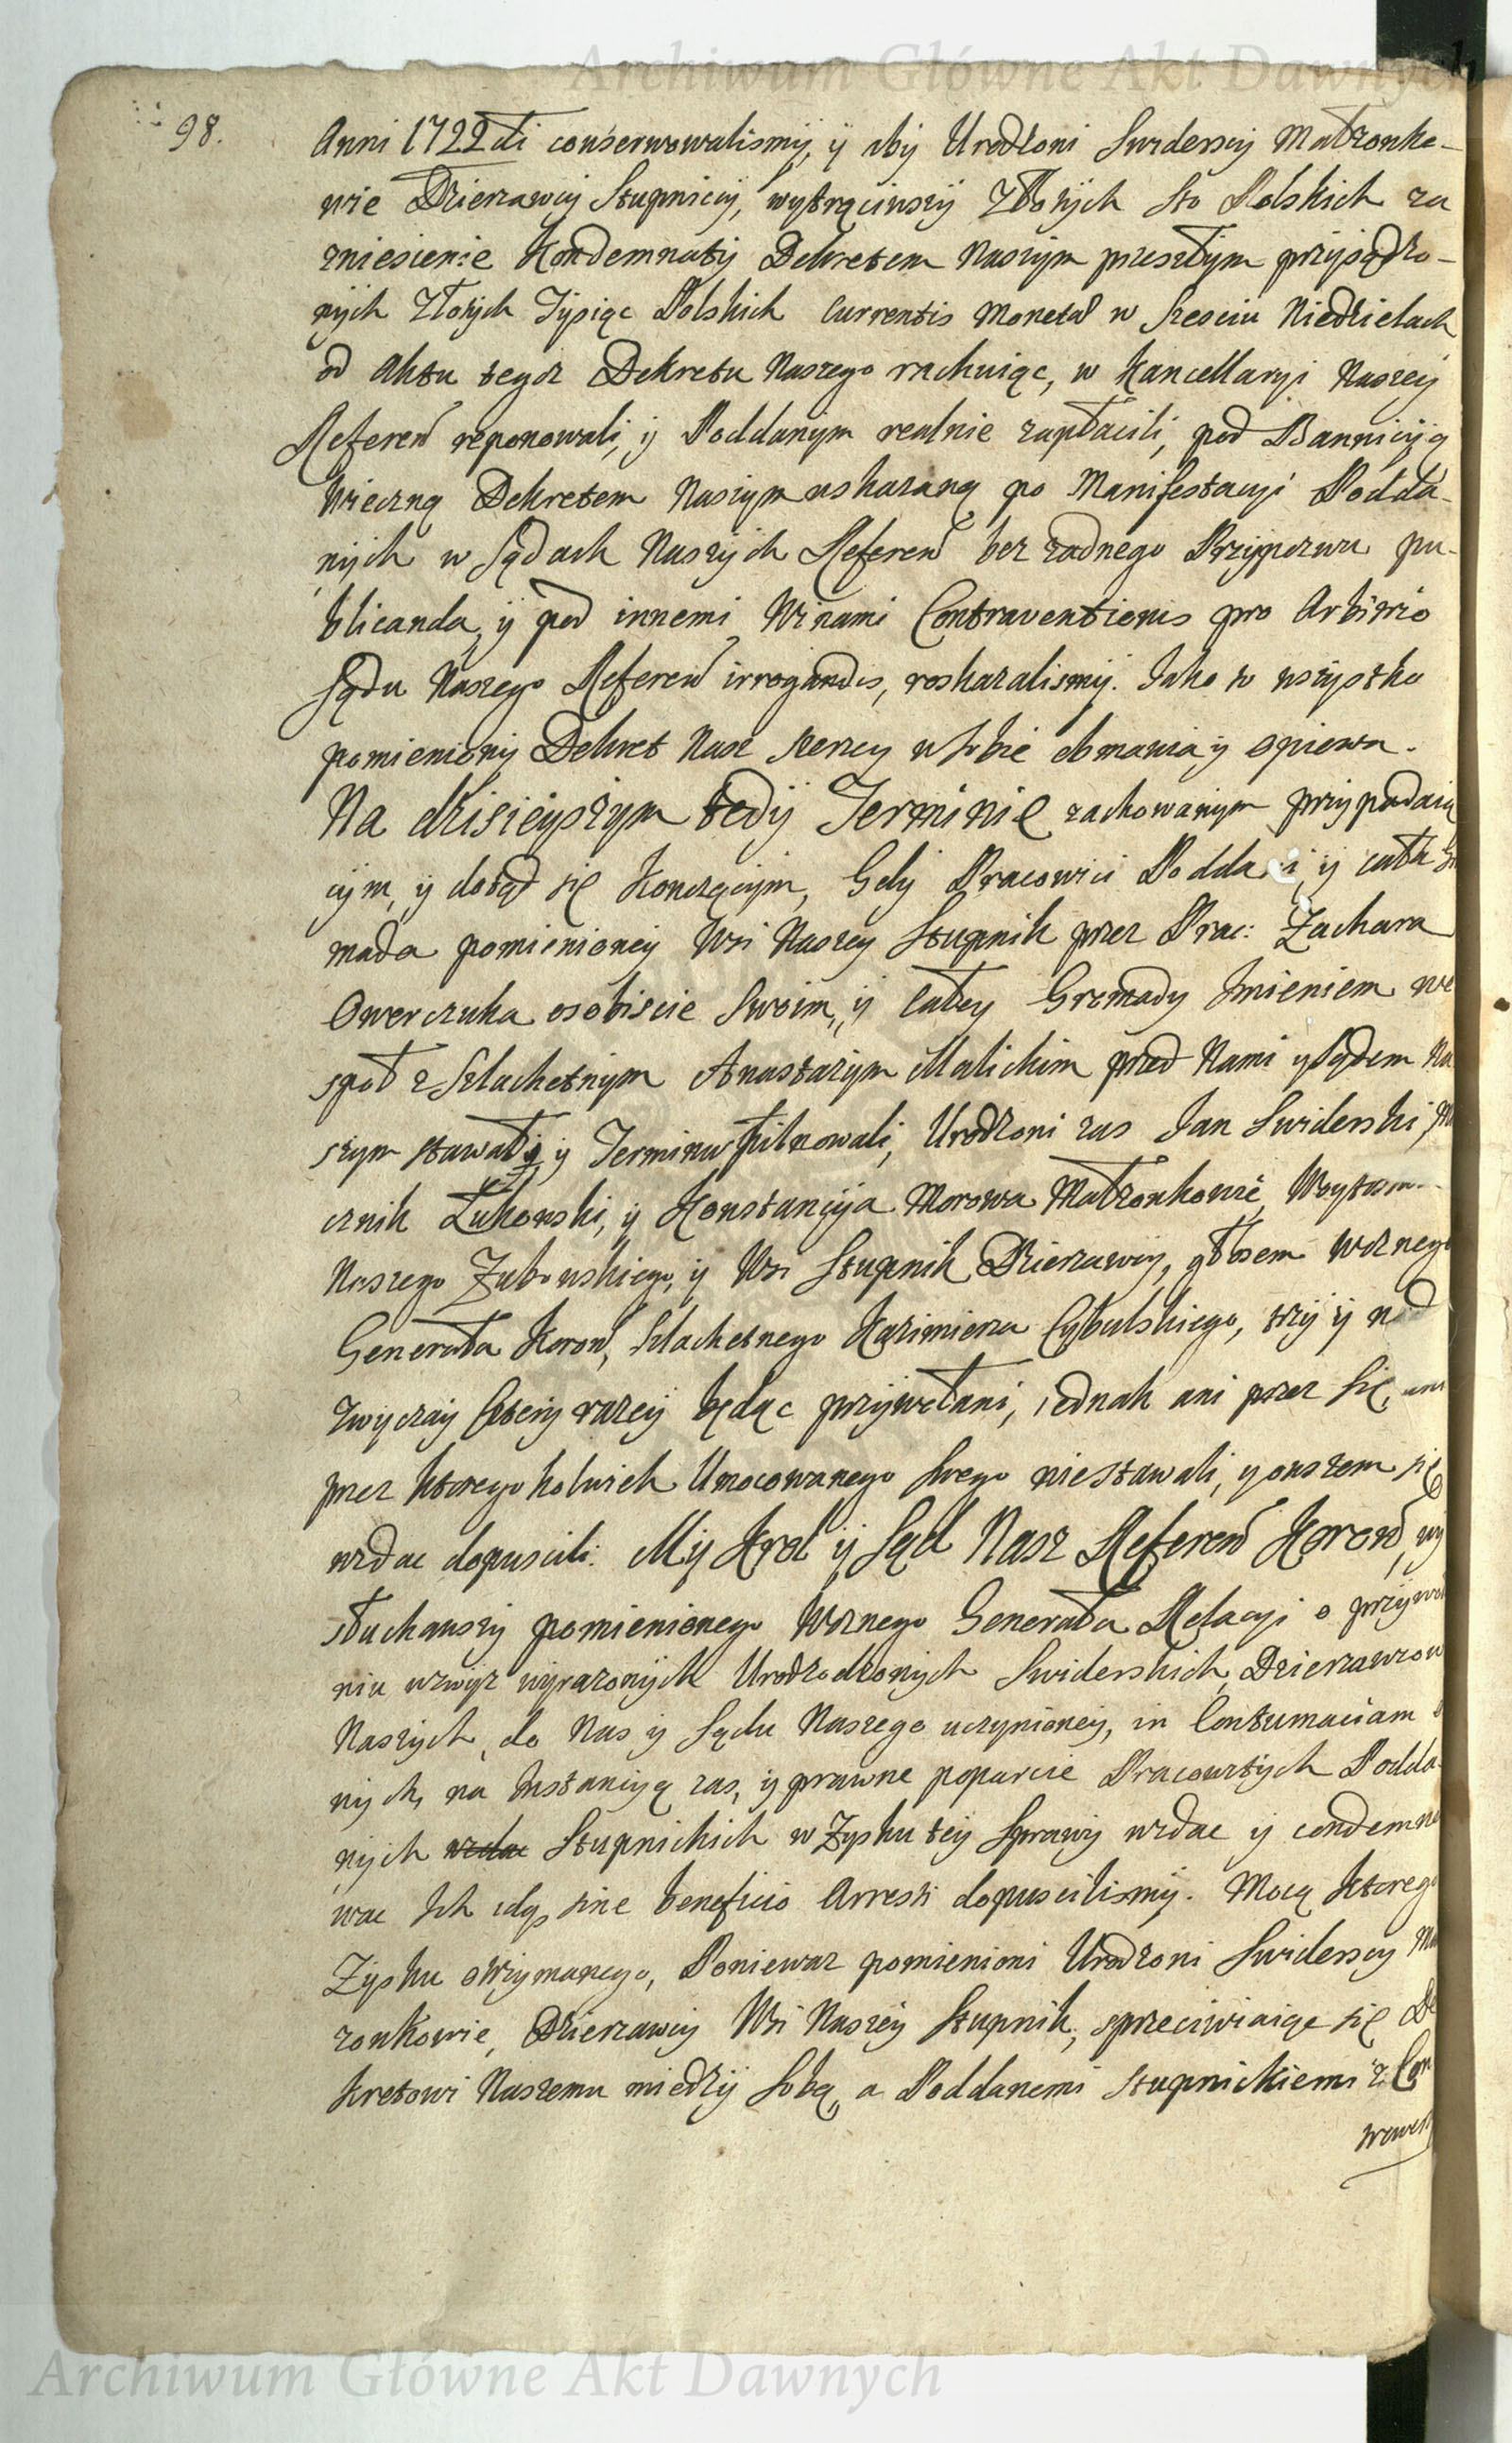 Archiwum Główne Akt Dawnych
98.
Anni 1722di conserwowalismy, y aby Urodzoni Swiderscy Małżonko-
wie Dzierzawcy Stupniccy, wytrąciwszy Złotych sto Polskich za
zniesienie Kondemnaty Dekretem Naszym przeszłym przysądzo-
nych Złotych Tysiąc Polskich Currentis Moneta w Szesciu Niedzielach
od Aktu tegoz Dekretu Naszego rachuiąc, w Kancellaryi Naszey
Referen reponowali, y Poddanym realnie zapłacili, pod Bannicyią
Wieczną Dekretem Naszym wskazaną po Manifestacyi Podda-
nych w Sądach Naszych Referen bez zadnego Przypozwu pu-
blicanda, y pod innemi Winami Contraventionis pro Arbitrio
Sądu Naszego Referen irrogandis, roskazalismy. Jako to wszystko
pomieniony Dekret Nasz szerzey w sobie obmawia y opiewa.
Na dzisieyszym tedy Terminie zachowanym przypadaią
cym, y dotąd się Konczącym, Gdy Pracowici Podda i, y cała Gro
mada pomienioney Wsi Naszey Stupnik przez Prac: Zachara
Owerczuka osobiscie Swoim, y Całey Gromady Imieniem we
społ z Szlachetnym Anastazym Malickim przed Nami y Sądem Na
szym stawali y Terminu pilnowali, Urodzoni zas Jan Swiderski,
cznik Łukowski, y Konstancyia Morowa Małżonkowie, Woytow
Naszego Zubowskiego, y Wsi Stupnik Dzierzawcy, głosem Woznego
Generała Koron, Szlachetnego Kazimierza Cybulskiego, trzy y nad
zwyczay Cztery razey będąc przywołani, iednak ani przez się, ani
przez ktoregokolwiek Umocowanego Swego niestawali, y owszem się
wzdac dopuscili. My Krol y Sąd Nasz Referen Koron, wy
słuchawszy pomienionego Woznego Generała Relacyi o przywoła
niu wzwyz wyrazonych Urodzodzonych Swiderskich, Dzierzawcow
Naszych, do Nas y Sądu Naszego uczynioney, in Contumaciam
nych, na Instancyią zas, y prawne poparcie Pracowitych Podda-
nych wzdac Stupnickich w Zysku tey Sprawy wzdac y condemno
wac Ich sine beneficio Arresti dopuscilismy. Mocą Ktorego
Zysku otrzymanego, Poniewaz pomienieni Urodzoni Swiderscy Ma
zonkowie, Dzierzawcy Wsi Naszey Stupnik, sprzeciwiaiąc się De
kretowi Naszemu miedzy Sobą, a Poddanemi Stupnickiemi z Con
Archiwum Główne Akt Dawnych